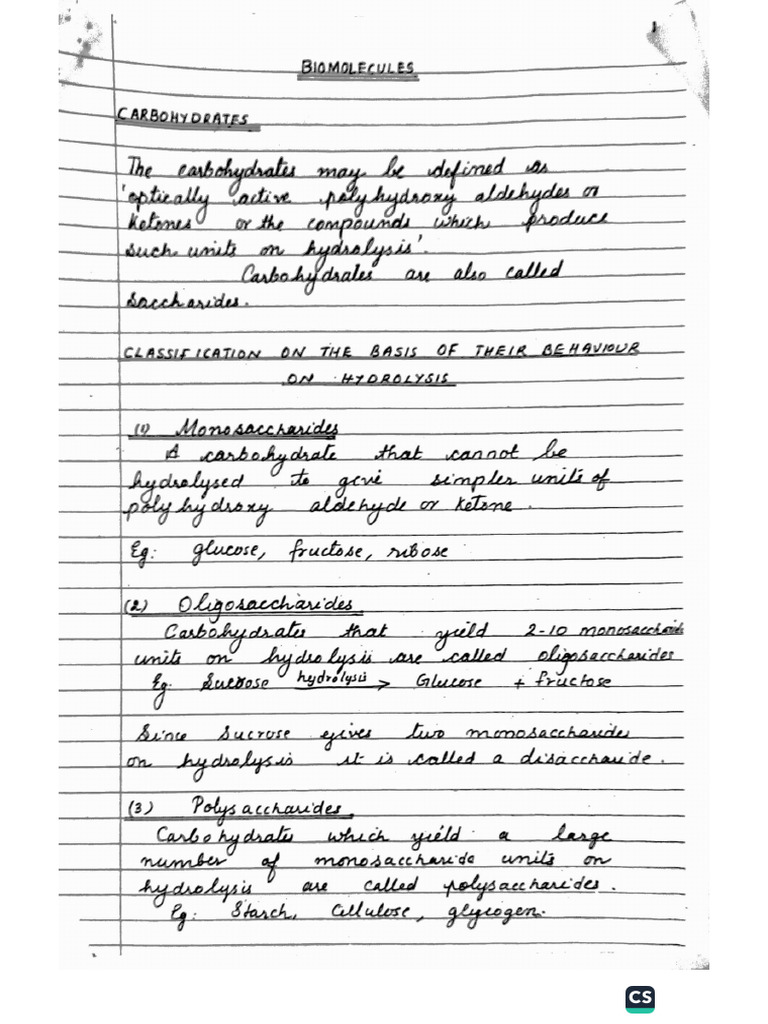 1
BIOMOLECULES
CARBOHYDRATES
The carbohydrates may be defined as
'optically active polyhydroxy aldehydes or
ketones or the compounds which produce
such units on hydrolysis'.
Carbohydrates are also called
saccharides.
CLASSIFICATION ON THE BASIS OF THEIR BEHAVIOUR
ON HYDROLYSIS
(1) Monosaccharides
A carbohydrate that cannot be
hydrolysed to give simpler units of
polyhydroxy aldehyde or ketone.
Eg: glucose, fructose, ribose
(2) Oligosaccharides
Carbohydrates that yield 2-10 monosaccharide
units on hydrolysis are called oligosaccharides
Eg: Sucrose hydrolysis → Glucose + fructose
Since sucrose gives two monosaccharides
on hydrolysis it is called a disaccharide.
(3) Polysaccharides
Carbohydrates which yield a large
number of monosaccharide units on
hydrolysis are called polysaccharides.
Eg: Starch, Cellulose, glycogen.
CS